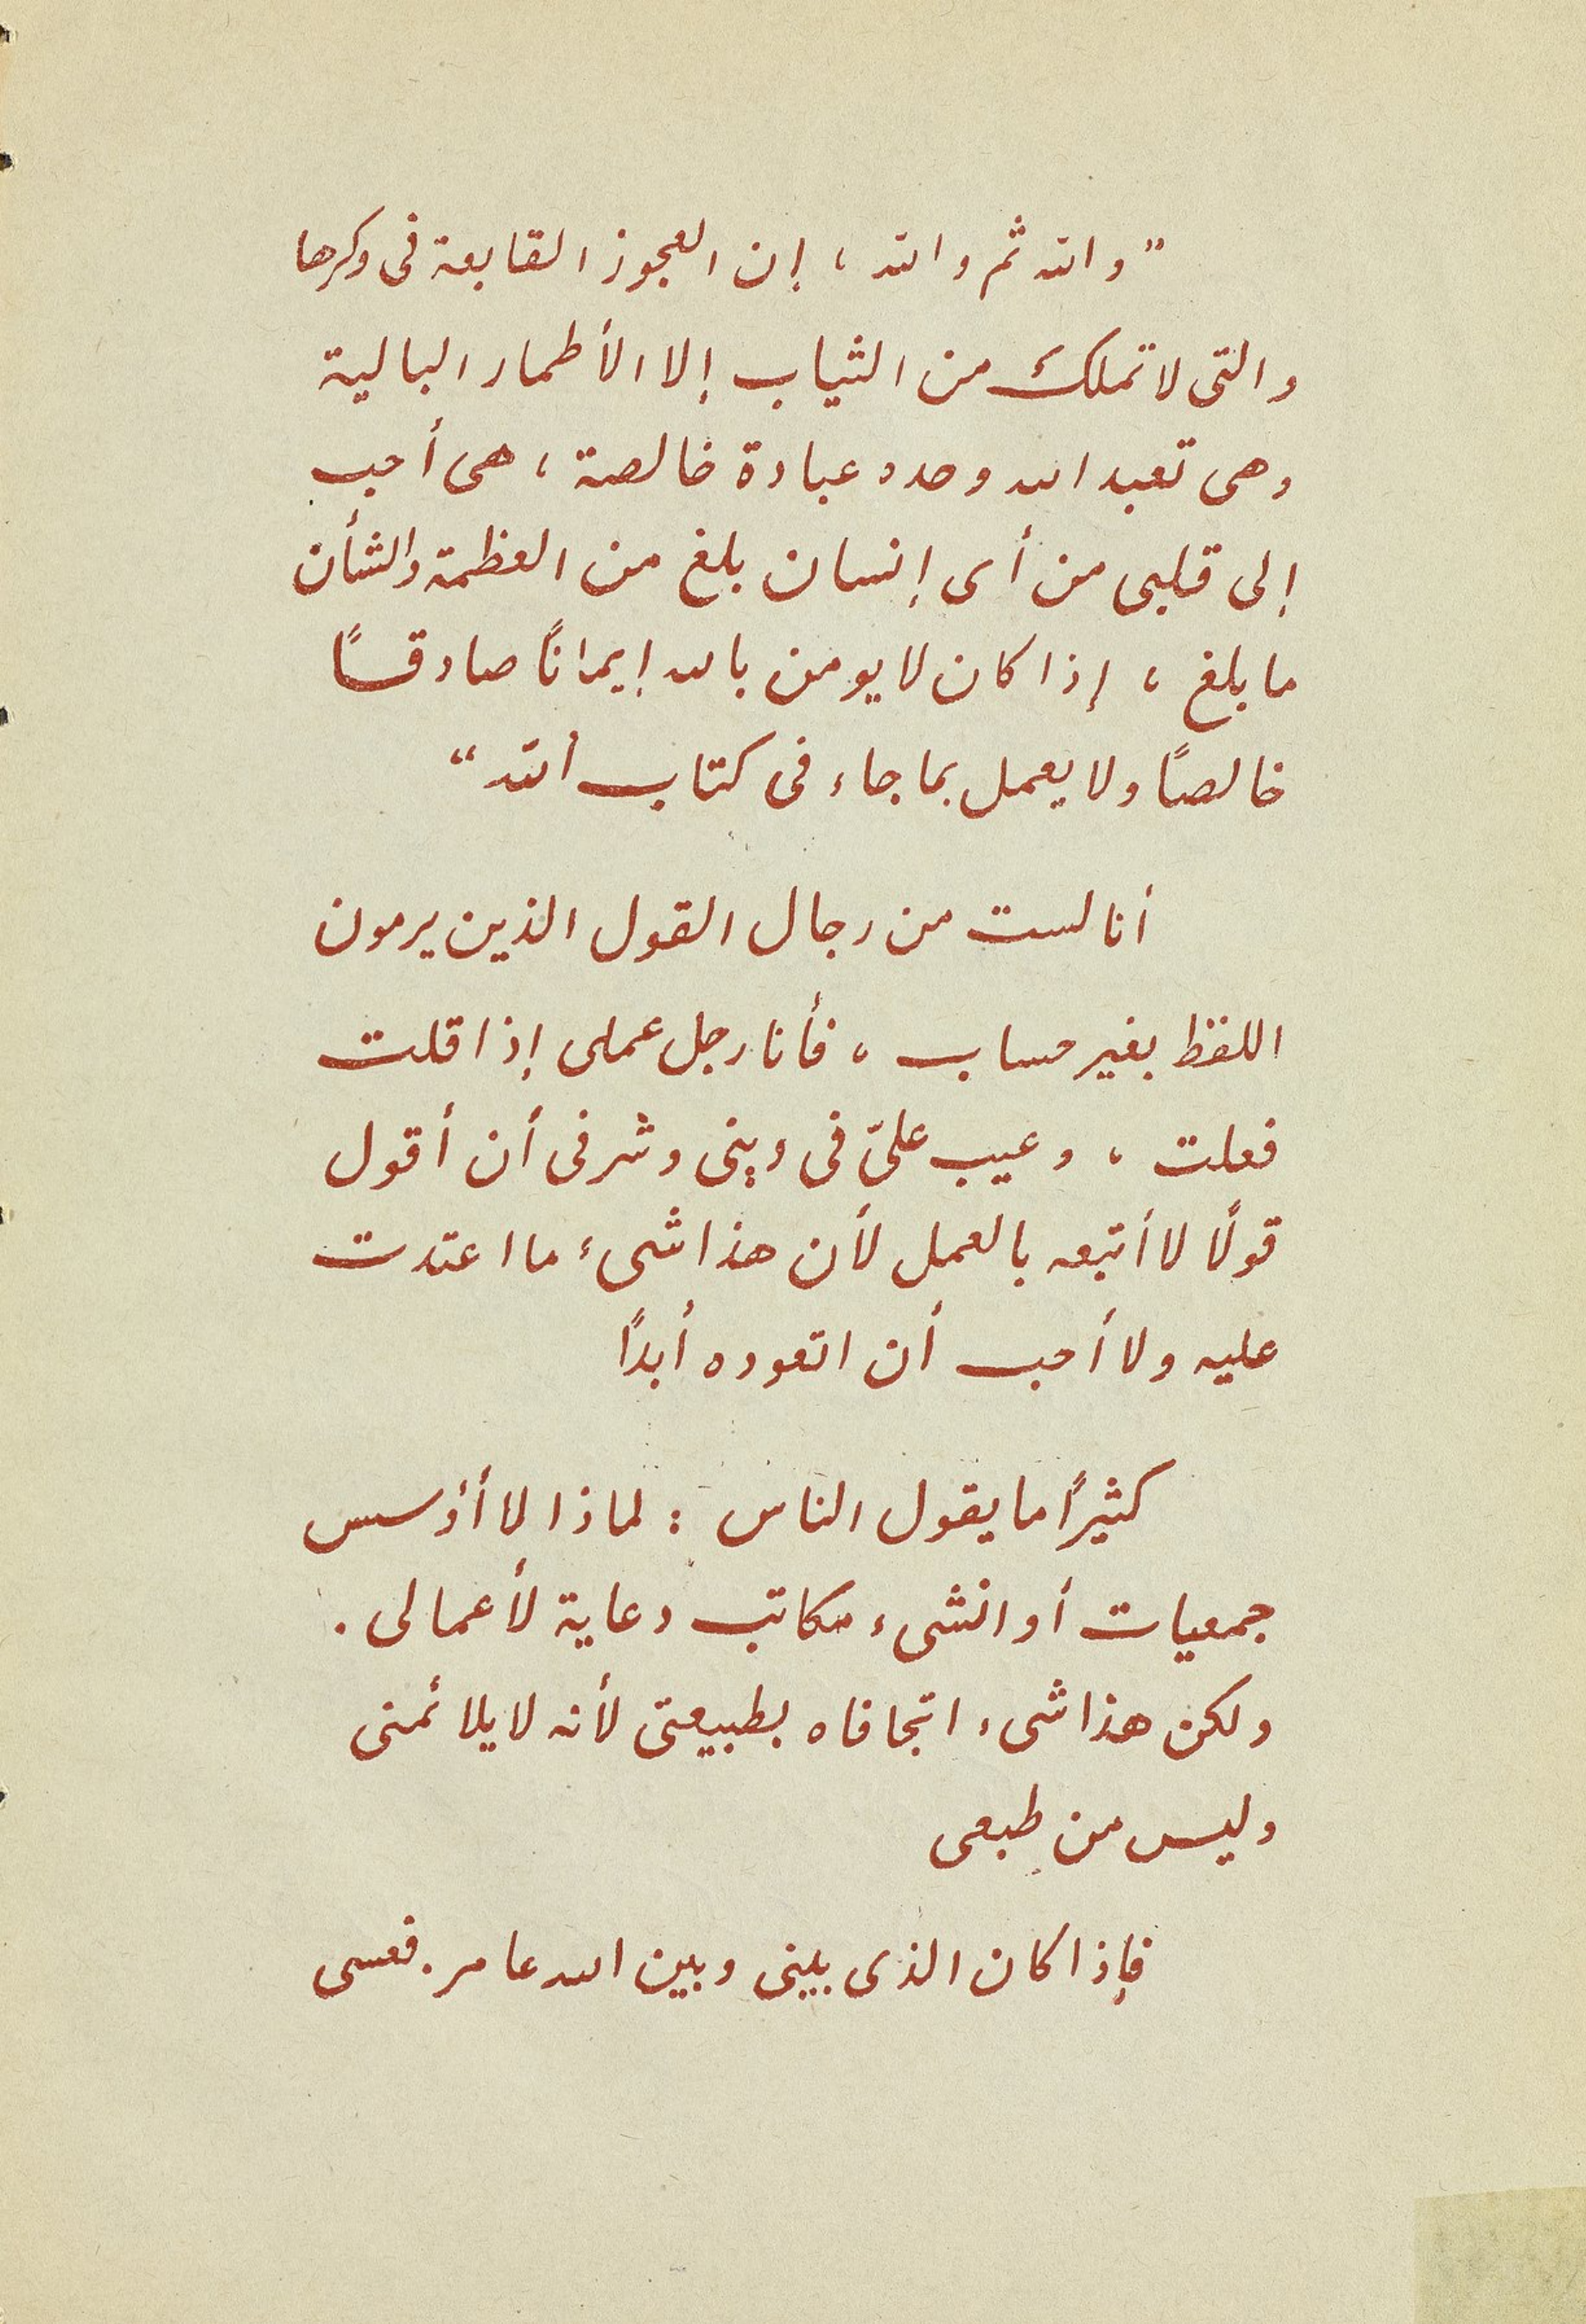 "والله ثم والله، إن العجوز القابعة فى وكرها
والتى لا تملك من الثياب إلا الأطمار البالية
وهى تعبد الله وحده عبادة خالصة، هى أحب
إلى قلبى من أى إنسان بلغ من العظمة والشأن
ما بلغ، إذا كان لا يومن بالله إيمانًا صادقًا
خالصًا ولا يعمل بما جاء فى كتاب الله"
أنا لست من رجال القول الذين يرمون
اللفظ بغير حساب، فأنا رجل عملى إذا قلت
فعلت، وعيب علىّ فى دينى وشرفى أن أقول
قولًا لا أتبعه بالعمل لأن هذا شىء ما اعتدت
عليه ولا أحب أن اتعوده أبدًا
كثيرًا ما يقول الناس : لماذا لا أؤسس
جمعيات أو انشىء مكاتب دعاية لأعمالى .
ولكن هذا شىء اتجافاه بطبيعتى لأنه لا يلائمنى
وليس من طبعى
فإذا كان الذى بينى وبين الله عامر . فعسى